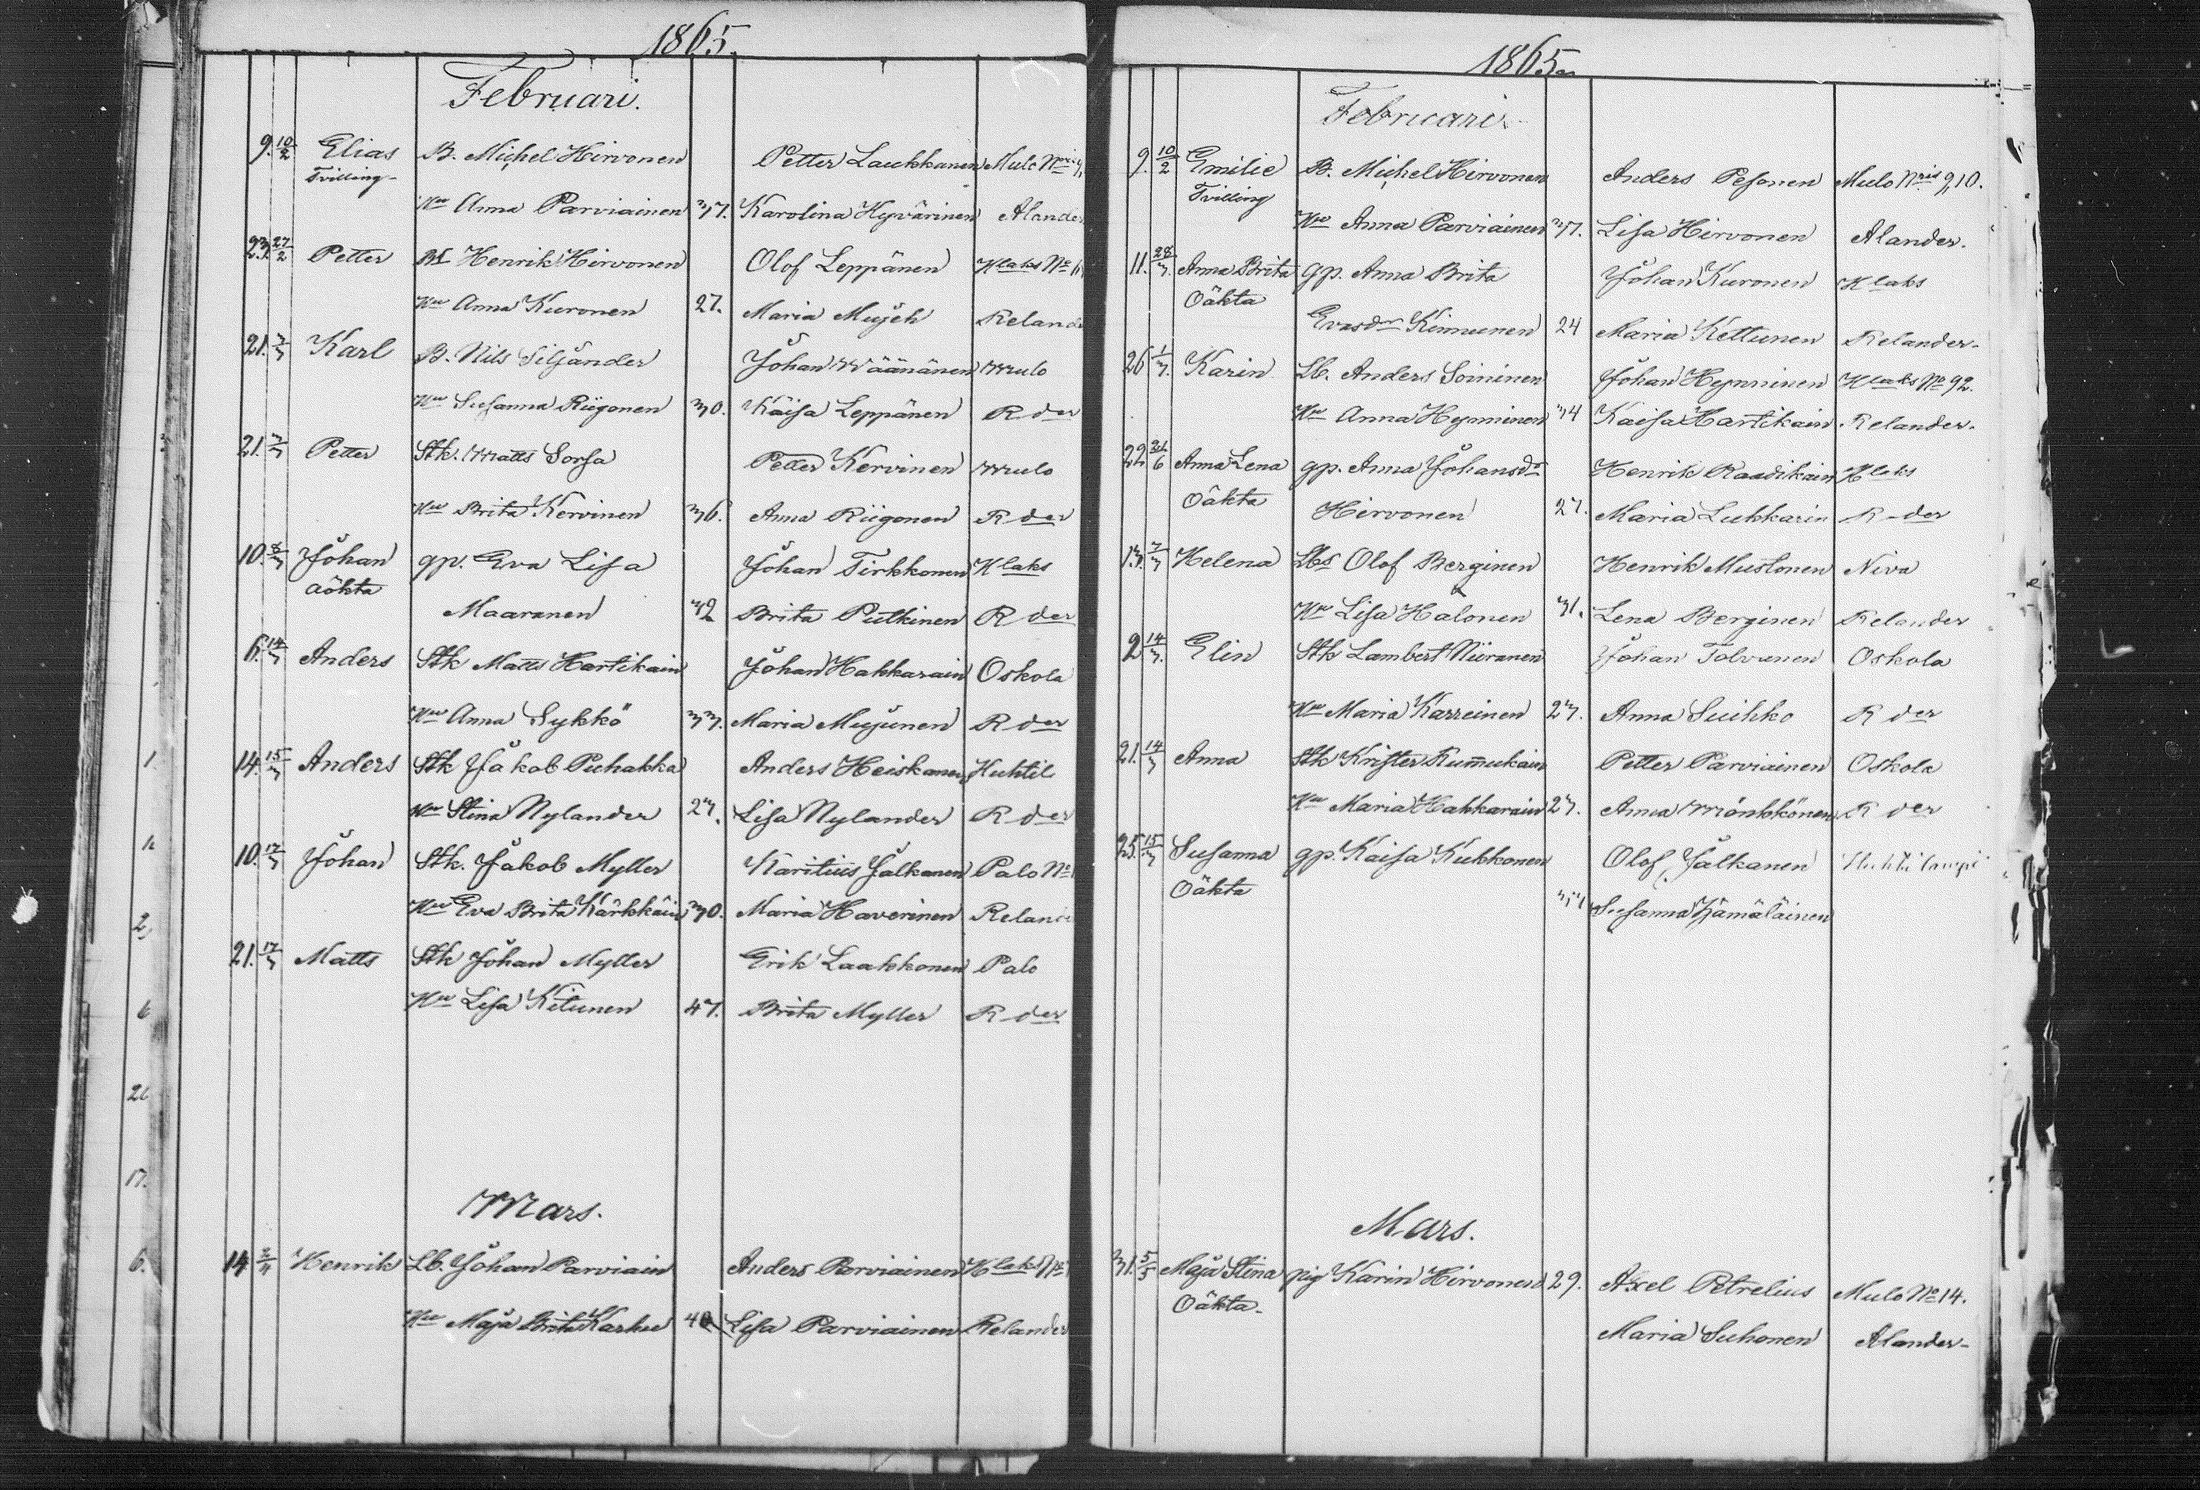 1865.
Februari.
9. 10/2 Elias B. Michel Hirvonen Petter Laukkanen Mulo Nris 9,
Tvilling
Hu Anna Parviainen 37. Karolina Hyvärinen Alander
23. 27/2 Petter Bd Henrik Hirvonen Olof Leppänen Hlaks No
Hu Anna Kuronen 27. Maria Mujeh Reland
21. Karl B. Nils Siljander Johan Wäänänen Mulo
Hu Susanna Riigonen 30. Kaisa Leppänen R der
21. Petter Stk. Matts Sorsa Petter Kervinen Mulo
Hu Brita Kervinen 36. Anna Riigonen R der
10. 8/3 Johan gp. Eva Lisa Johan Tirkkonen Hlaks
oäkta
Maaranen 32 Brita Putkinen R der
6. 14/3 Anders Stk Matts Hartikain Johan Hakkarain Oskola
Hu Anna Sykkö 33. Maria Mujunen R der
14. 15/3 Anders Stk Jakob Puhakka Anders Heiskanen Huhtil
Hu Stina Nylander 23. Lisa Nylander R der
10. 17/3 Johan Stk. Jakob Myller Karitius Jalkanen Palo No
Hu Eva Brita Kärkkäin 30. Maria Haverinen Reland
21. 17/3 Matts Stk Johan Myller Erik Laakkonen Palo
Hu Lisa Kitunen 43. Brita Myller R der
Mars.
14 Henrik Lb. Johan Parviain Anders Parviainen Hlaks No
Hu Maja Brita Karhu 40 Lisa Parviainen Relander
1865
Februari.
9. 10/2 Emilie B. Michel Hirvonen Anders Pesonen Mulo Nris 9,10.
Tvilling
Hu Anna Parviainen 37. Lisa Hirvonen Alander.
11. 28/3 Anna Brita gp. Anna Brita Johan Kuronen Hlaks
Oäkta
Evasdr Kinnunen 24 Maria Kettunen Relander.
26 1/3 Karin Lb. Anders Soininen Johan Hynninen Hlaks No 92.
Hu Anna Hynninen 34 Kaisa Hartikain Relander.
22 Anna Lena gp. Anna Johansdr Henrik Raadikain Hlaks
Oäkta Hirvonen 27. Maria Lukkarin R der
13. 7/3 Helena Lbs Olof Berginen Henrik Mustonen Niva
Hu Lisa Halonen 31. Lena Berginen Relander
2 14/3 Elin Stk Lambert Niiranen Johan Tolvanen Oskola
Hu Maria Karreinen 23. Anna Suihko R der
21. 14/3 Anna Stk Krister Rummukain Petter Parviainen Oskola
Hu Maria Hakkarain 23. Anna Mönkkönen R der
25. 15/3 Susanna gp. Kaisa Kukkonen Olof Jalkanen Huhtilampi
Oäkta
Susanna Hämäläinen
Mars.
31. 5/5 Maja Stina pig Karin Hirvonen 29. Axel Petrelius Mulo No 14.
Oäkta.
Maria Suhonen Alander